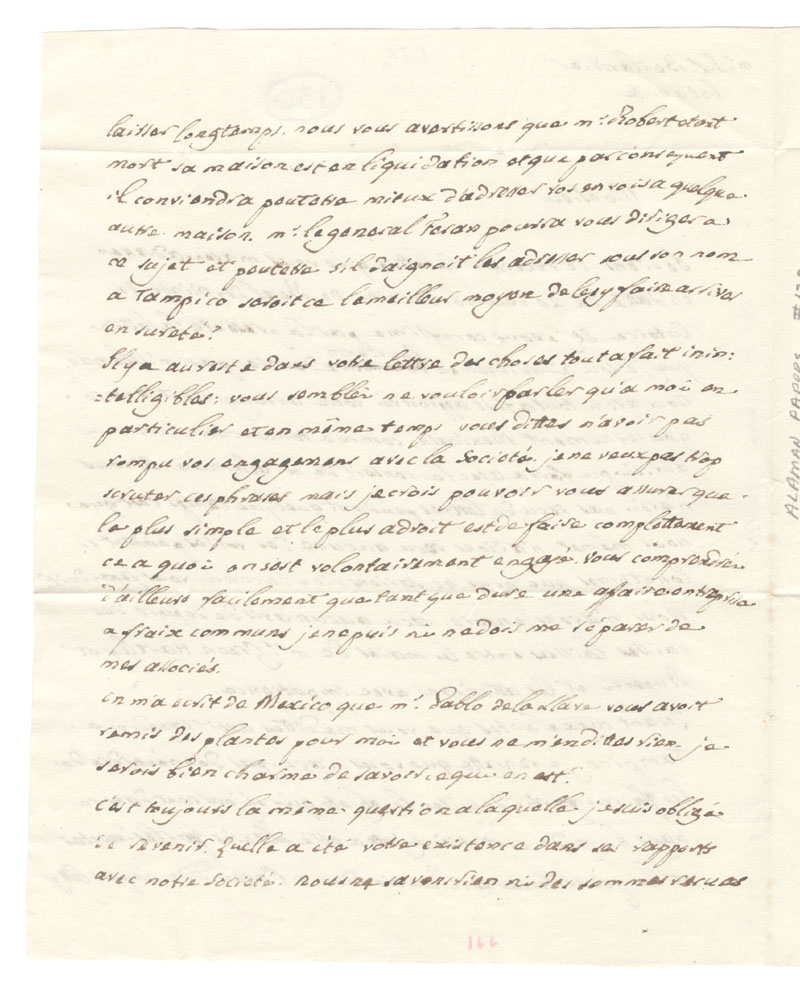 laisser longtemps. nous vous avertissons que mr. Robert etant
mort sa maison est en liquidation et que par consequent
il conviendra peutetre mieux d'adresser vos envois a quelque
autre maison. mr. le general Teran pourra vous diriger a
ce sujet et peutetre s'il daignoit les adresser sous son nom
a Tampico seroit ce le meilleur moyen de les y faire arriver
en sureté?
Il y a au reste dans votre lettre des choses tout a fait inin=
=telligibles: vous semblés ne vouloir parler qu'a moi en
particulier et en même temps vous dittes n'avoir pas
rompu vos engagemens avec la Societé. je ne veux pas trop
scruter ces phrases mais je crois pouvoir vous assurer que
le plus simple et le plus adroit est de faire complettement
ce a quoi on s'est volontairement engagé. vous comprendrés
d'ailleurs facilement que tant que dure une affaire entreprise
a fraix communs je ne puis ni ne dois me séparer de
mes associés.
on m'a ecrit de Mexico que mr. Pablo de la Llave vous avoit
remis des plantes pour moi et vous ne m'en dittes rien. je
serois bien charmé de savoir ce que en est?
c'est toujours la même question a laquelle je suis obligé
de revenir. Quelle a été votre existence dans ses rapports
avec notre Societé. nous ne savons rien ni des sommes recues
144
ALAMAN PAPERS